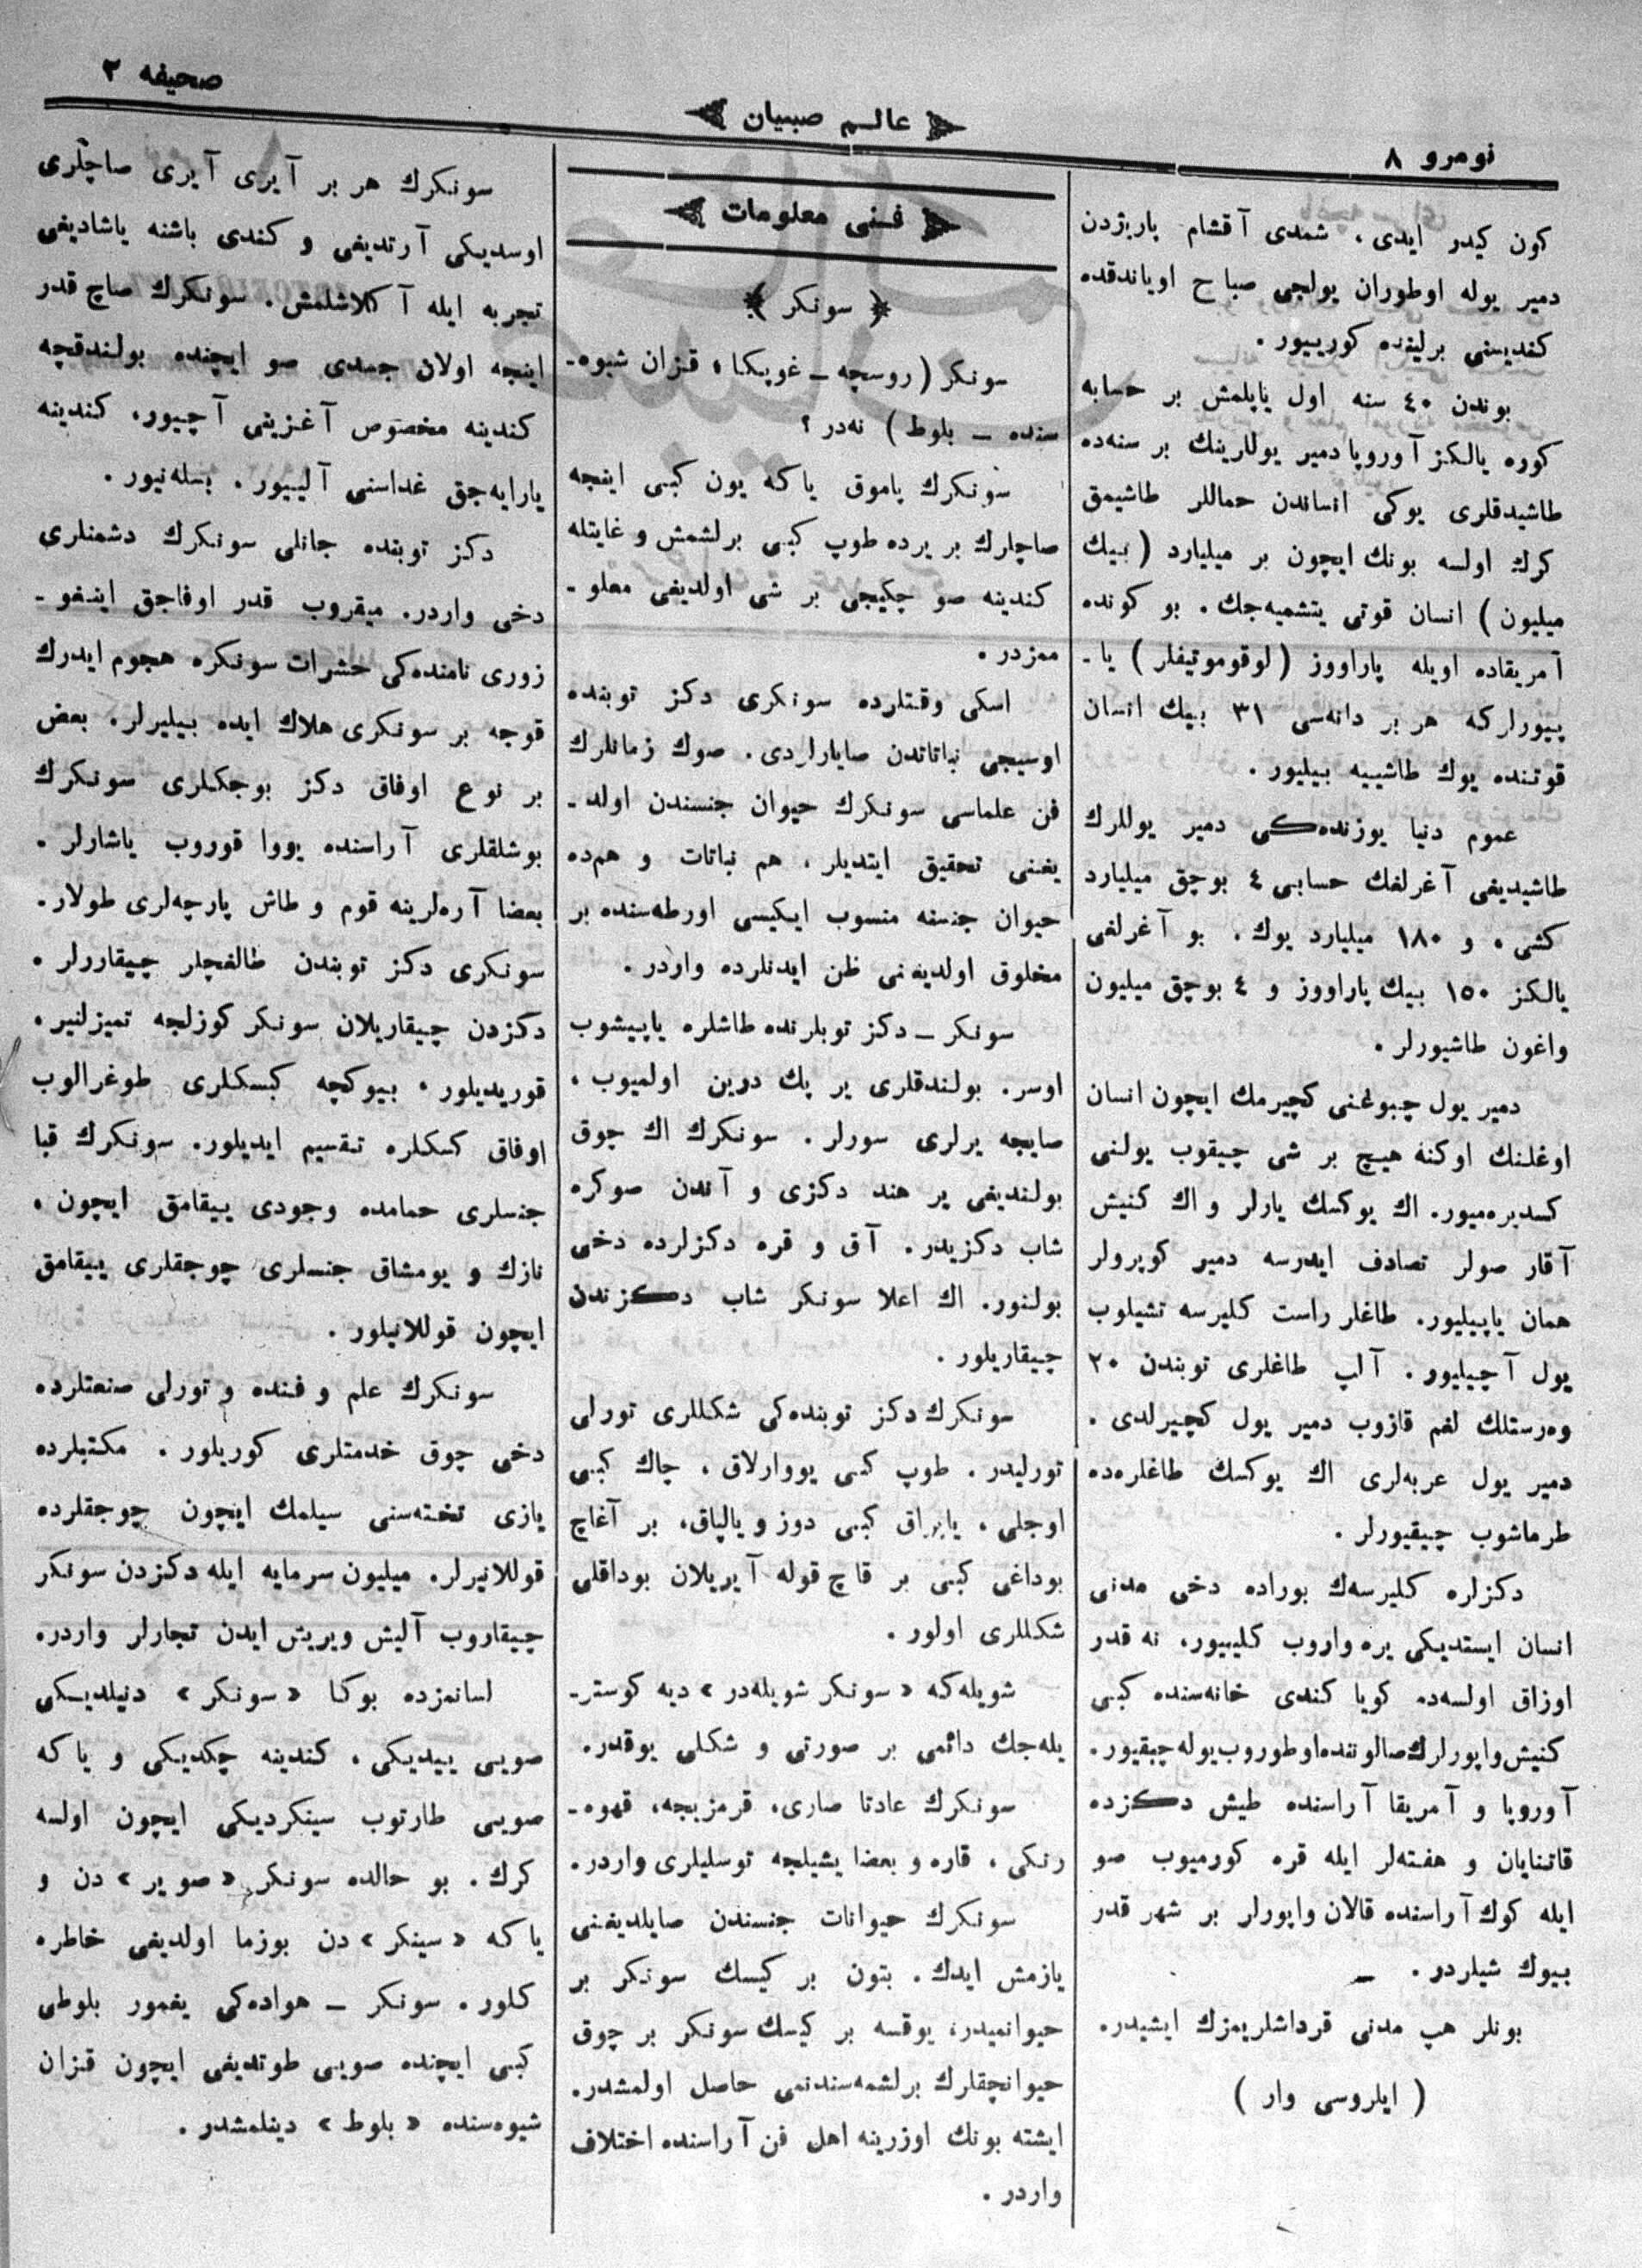 صحیفه ٢
عالـم صبیان
نومرو ٨
كون كیدر ایدی ، شمدی آقشام پاریژدن
دمیر یوله اوطوران یولجی صباح اویاندقده
كندیسنی برلینده كورییور .
بوندن ٤٠ سنه اول یاپلمش بر حسابه
كوره یالكز آوروپا دمیر یوللرینك بر سنه‌ده
طاشیدقلری یوكی انساندن حماللر طاشیمق
كرك اولسه بونك ایچون بر میلیارد ( بیك
میلیون ) انسان قوتی یتشمیه‌جك . بو كونده
آمریقاده اویله پاراووز ( لوقوموتیفلر ) یا ـ
پیورلركه هر بر دانه‌سی ٣١ بیك انسان
قوتنده یوك طاشییه بیلیور .
عموم دنیا یوزنده‌كی دمیر یوللرك
طاشیدیغی آغرلغك حسابی ٤ بوچق میلیارد
كشی ، و ١٨٠ میلیارد یوك . بو آغرلغی
یالكز ١٥٠ بیك پاراووز و ٤ بوچق میلیون
واغون طاشیورلر .
دمیر یول چبوغنی كچیرمك ایچون انسان
اوغلنك اوكنه هیچ بر شی چیقوب یولنی
كسدیره‌میور. اك یوكسك یارلر و اك كنیش
آقار صولر تصادف ایدرسه دمیر كوپرولر
همان یاپیلیور. طاغلر راست كلیرسه تشیلوب
یول آچیلیور . آلپ طاغلری توبندن ٢٠
وه‌رستلك لغم قازوب دمیر یول كچیرلدی .
دمیر یول عربه‌لری اك یوكسك طاغلره‌ده
طرماشوب چیقیورلر .
دكزلره كلیرسه‌ك بوراده دخی مدنی
انسان ایستدیكی یره واروب كلییور، نه قدر
اوزاق اولسه‌ده كویا كندی خانه‌سنده كبی
كنیش واپورلرك صالوننده اوطوروب یوله چیقیور.
آوروپا و آمریقا آراسنده طیش دكزده
قاتنایان و هفته‌لر ایله قره كورمیوب صو
ایله كوك آراسنده قالان واپورلر بر شهر قدر
بیوك شیلردر . ـ
بونلر هپ مدنی قرداشلریمزك ایشیدر.
( ایلروسی وار )
فـنی معلومات
﴿ سونكر ﴾
سونكر ( روسچه ـ غوبكا ، قزان شیوه‌ـ
سنده ـ بلوط ) نه‌در ؟
سونكرك پاموق یاكه یون كبی اینچه
صاچلرك بر یرده طوپ كبی برلشمش و غایتله
كندینه صو چكیجی بر شی اولدیغی معلو ـ
ممزدر .
اسكی وقتلرده سونكری دكز توبنده
اوسیجی نباتاتدن صایارلردی . صوك زمانلرك
فن علماسی سونكرك حیوان جنسندن اولد ـ
یغنی تحقیق ایتدیلر . هم نباتات و هم‌ده
حیوان جنسنه منسوب ایكیسی اورطه‌سنده بر
مخلوق اولدیغنی ظن ایدنلرده واردر .
سونكر ـ دكز توبلرنده طاشلره یاپیشوب
اوسر. بولندقلری یر پك درین اولمیوب ،
صایجه یرلری سورلر . سونكرك اك چوق
بولندیغی یر هند دكزی و آندن صوكره
شاب دكزیدر . آق و قره دكزلرده دخی
بولنور. اك اعلا سونكر شاب دكزندن
چیقاریلور .
سونكرك دكز توبنده‌كی شكللری تورلی
تورلیدر . طوپ كبی یووارلاق ، چاك كبی
اوجلی ، یاپراق كبی دوز و یالپاق، بر آغاچ
بوداغی كبی بر قاچ قوله آیریلان بوداقلی
شكللری اولور .
شویله‌كه « سونكر شویله‌در » دیه كوستر‌ـ
یله‌جك دائمی بر صورتی و شكلی یوقدر.
سونكرك عادتا صاری، قرمزیجه، قهوه‌ـ
رنكی ، قاره و بعضا یشیلجه توسلیلری واردر.
سونكرك حیوانات جنسندن صایلدیغنی
یازمش ایدك . بتون بر كیسك سونكر بر
حیوانمیدر، یوقسه بر كیسك سونكر بر چوق
حیوانچقلرك برلشمه‌سندنمی حاصل اولمشدر.
ایشته بونك اوزرینه اهل فن آراسنده اختلاف
واردر .
سونكرك هر بر آیری آیری صاچلری
اوسدیكی آرتدیغی و كندی باشنه یاشادیغی
تجربه ایله آكلاشلمش . سونكرك صاچ قدر
اینچه اولان جسدی صو ایچنده بولندقچه
كندینه مخصوص آغزینی آچیور، كندینه
یارایه‌جق غداسنی آلییور . بسله‌نیور .
دكز توبنده جانلی سونكرك دشمنلری
دخی واردر. میقروب قدر اوفاجق اینفو ـ
زوری نامنده‌كی حشرات سونكره هجوم ایدرك
قوجه بر سونكری هلاك ایده بیلیرلر. بعض
بر نوع اوفاق دكز بوجكلری سونكرك
بوشلقلری آراسنده یووا قوروب یاشارلر .
بعضا آره‌لرینه قوم و طاش پارچه‌لری طولار.
سونكری دكز توبندن طالغچلر چیقاررلر .
دكزدن چیقاریلان سونكر كوزلجه تمیزلنیر.
قوریدیلور . بیوكچه كیسكلری طوغرالوب
اوفاق كسكلره تقسیم ایدیلور. سونكرك قبا
جنسلری حمامده وجودی ییقامق ایچون ،
نازك و یومشاق جنسلری چوجقلری ییقامق
ایچون قوللانیلور .
سونكرك علم و فنده و تورلی صنعتلرده
دخی چوق خدمتلری كوریلور . مكتبلرده
یازی تخته‌سنی سیلمك ایچون چوجقلرده
قوللانیرلر. میلیون سرمایه ایله دكزدن سونكر
چیقاروب آلیش ویریش ایدن تجارلر واردر.
لسانمزده بوكا « سونكر » دنیلدیكی
صویی ییدیكی ، كندینه چكدیكی و یاكه
صویی طارتوب سینكردیكی ایچون اولسه
كرك . بو حالده سونكر « صو یر » دن و
یاكه « سینكر » دن بوزما اولدیغی خاطره
كلور . سونكر ـ هواده‌كی یغمور بلوطی
كبی ایچنده صویی طوتدیغی ایچون قزان
شیوه‌سنده « بلوط » دینلمشدر .